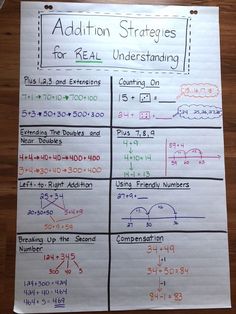 Addition Strategies
for REAL Understanding
Plus 1,2,3 and Extensions
7+1→70+10→700+100
5+3→50+30→500+300
Counting On
15 +
16, 17, 18
24 +
24
Extending The Doubles and
Near Doubles
4+4→40+40→400+400
4+3→40+30→400+300
Plus 7, 8, 9
4+9
4+10=14
59+4
Left-to-Right Addition
25+34
20+30=50
5+4=9
50+9=59
Using Friendly Numbers
27+9=
27
36
Breaking Up the Second
Number
124+345
300 40 5
124+300=424
424+40=464
464+5=469
Compensation
34+49
+1
34+50=84
-1
84-1=83